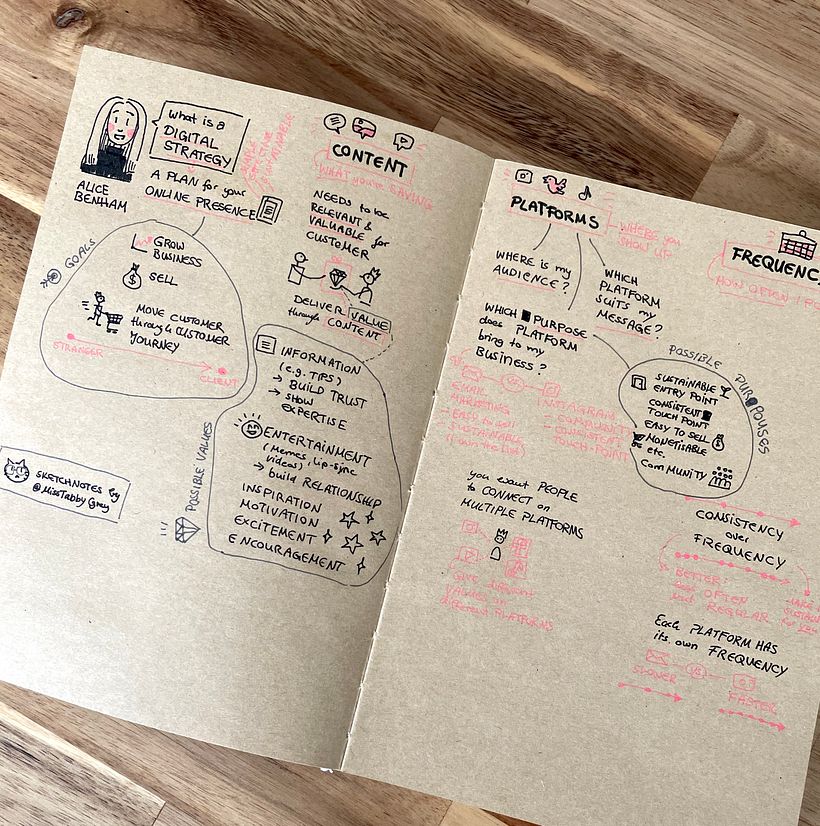 what is a
DIGITAL
STRATEGY
A PLAN for your
ONLINE PRESENCE
ALICE
BENHAM
GOALS
GROW
BUSINESS
SELL
MOVE CUSTOMER
through CUSTOMER
YOURNEY
STRANGER
CLIENT
SKETCHNOTES by
@MissTabbyGray
CONTENT
WHAT you're SAYING
NEEDS to be
RELEVANT &
VALUABLE for
CUSTOMER
DELIVER VALUE
through CONTENT
POSSIBLE VALUES
INFORMATION
(e.g. TIPS)
→ BUILD TRUST
→ SHOW
EXPERTISE
ENTERTAINMENT
(Memes, Lip-sync
videos)
→ build RELATIONSHIP
INSPIRATION
MOTIVATION
EXCITEMENT
ENCOURAGEMENT
PLATFORMS
WHERE you
SHOW UP
WHERE is my
AUDIENCE?
WHICH
PLATFORM
SUITS my
MESSAGE?
WHICH PURPOSE
does PLATFORM
bring to my
BUSINESS?
EMAIL
MARKETING
→ Easy to sell
→ SUSTAINABLE
VS
INSTAGRAM
→ COMMUNITY
→ CONSISTENT
TOUCH-POINT
POSSIBLE PURPOUSES
SUSTAINABLE
ENTRY POINT
CONSISTENT
TOUCH POINT
EASY TO SELL
MONETISABLE
etc.
COMMUNITY
you want PEOPLE
to CONNECT on
MULTIPLE PLATFORMS
GIVE different
VALUES on
different PLATFORMS
FREQUENC
HOW OFTEN I PO
CONSISTENCY
over
FREQUENCY
BETTER:
less OFTEN
REGULAR
Each PLATFORM HAS
its own FREQUENCY
VS
SLOWER
FASTER